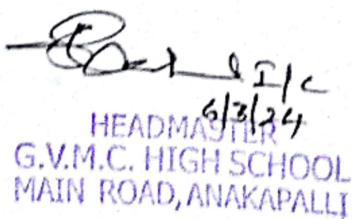 I/C
6/3/24
HEADMASTER
G.V.M.C. HIGH SCHOOL
MAIN ROAD, ANAKAPALLI